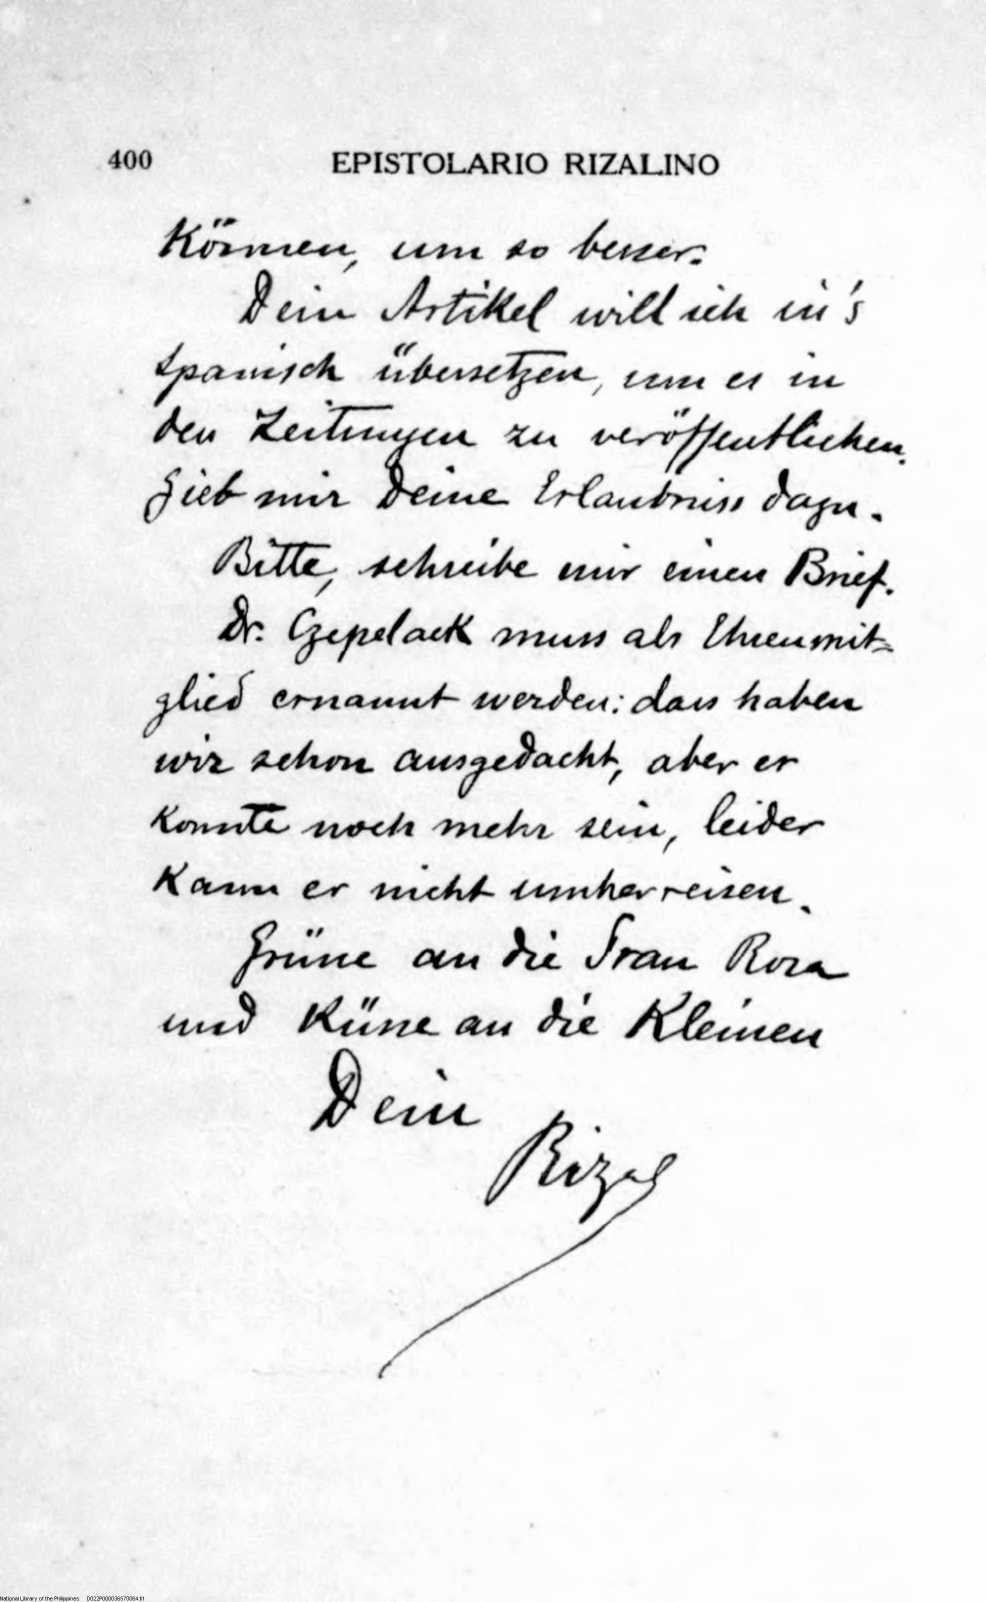 400
EPISTOLARIO RIZALINO
Können, um so besser.
Dein Artikel will ich in's
Spanisch übersetzen, um es in
den Zeitungen zu veröffentlichen.
Gieb mir Deine Erlaubniss dazu.
Bitte, schreibe mir einen Brief.
Dr. Czepelack muss als Ehrenmit-
glied ernannt werden: dass haben
wir schon ausgedacht, aber er
konnte noch mehr sein, leider
kann er nicht umherreisen.
Grüsse an die Frau Rosa
und Küsse an die Kleinen
Dein
Rizal
National Library of the Philippines D022P000036570064.tif